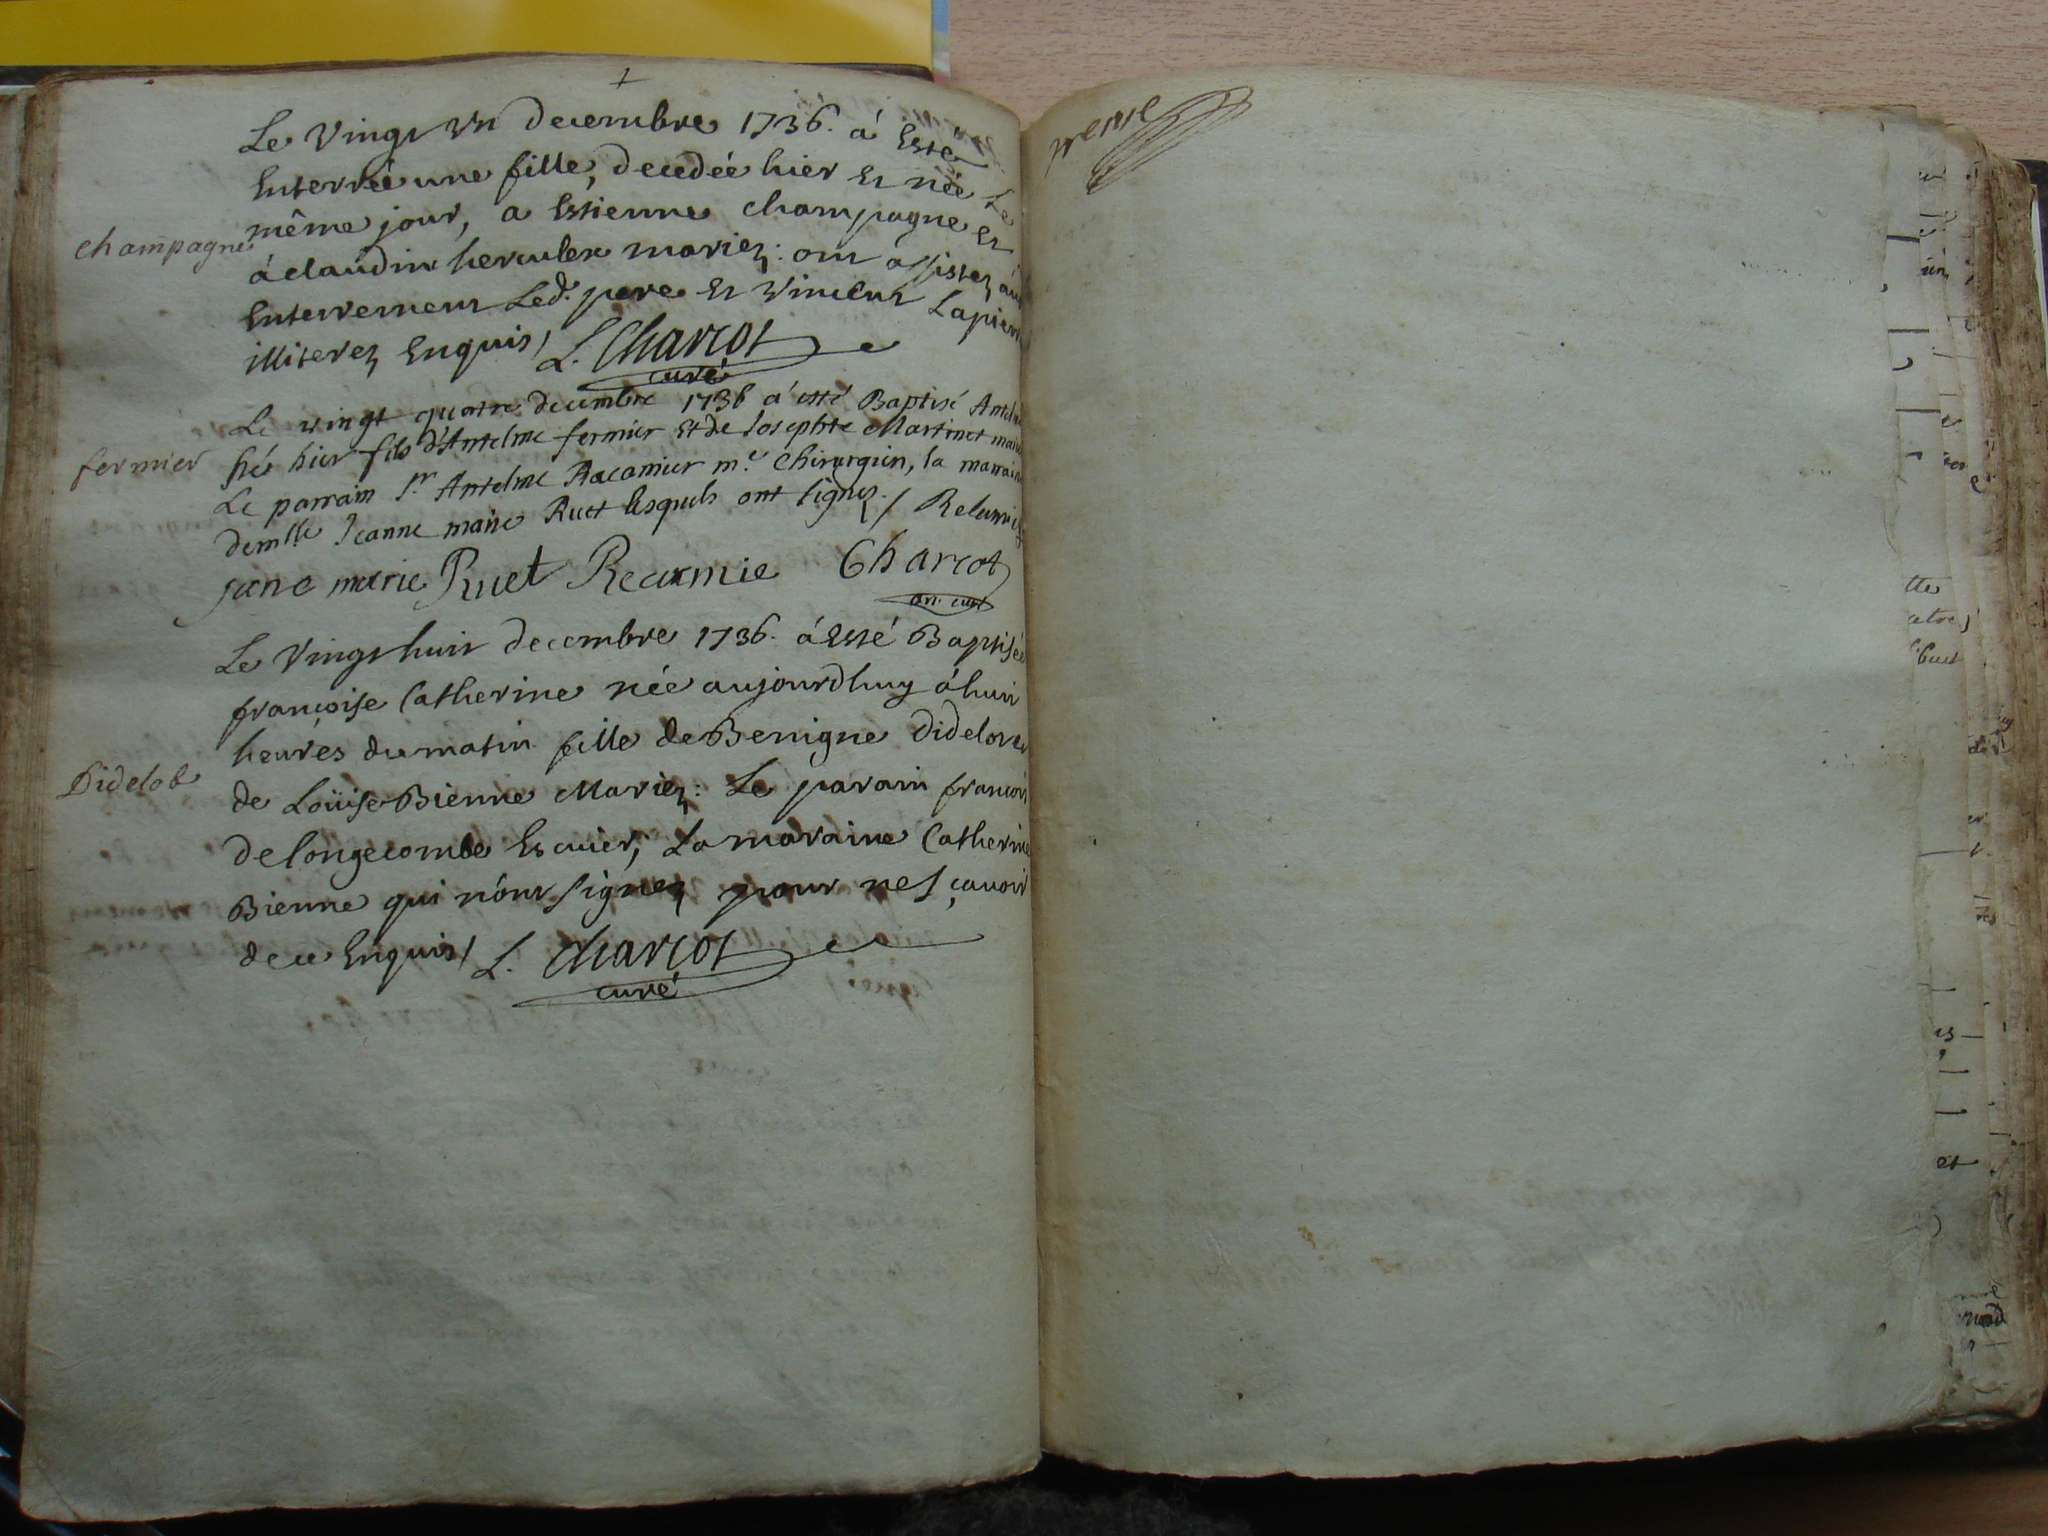 Le Vingt Vn decembre 1736. á Esté
Enterrée une fille, decedée hier Et née Le
même jour, a Estienne champagne Et
champagne
á claudine hercules mariez: ont assistez au
Enterrement Led. pere Et Vincent Lapierre
illiterez Enquis / L. Charcot
curé
Le vingt quatre decembre 1736 a esté Baptisé Antelme
fermier
né hier fils d'Antelme fermier et de Iosephte Martinet mariés
Le parrain Sr. Antelme Racamier me. Chirurgien, la marraine
demlle Jeanne marie Ruet lesquels ont signez. /
jane marie Ruet Recamie Charcot
an. curé
Le Vingt huit decembre 1736. á Esté Baptisée
françoise Catherine née aujourdhuy á huit
heures du matin fille de Benigne Didelot et
Didelot
de Loüise Bienne Mariez: Le parain francois
de longecombe Escuier, La maraine Catherine
Bienne qui nónt signez pour nesçavoir
de ce Enquis / L. Charcot
curé